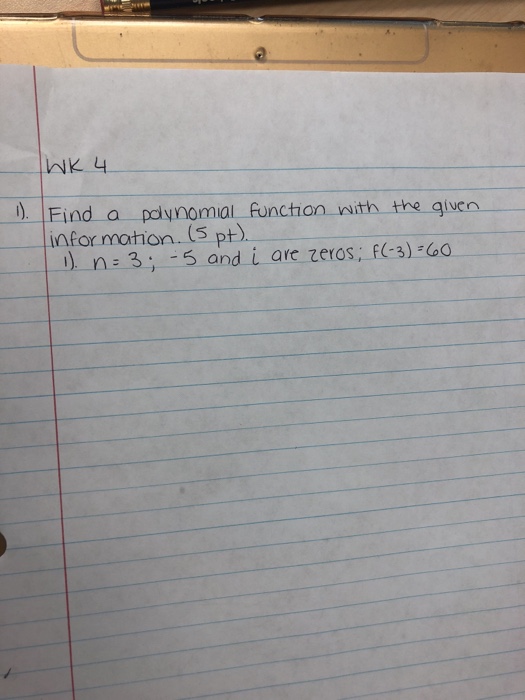 WK 4
1). Find a polynomial function with the given
information. (5 pt).
1). n = 3; -5 and i are zeros; f(-3) = 60